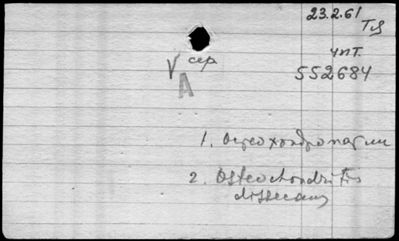 23.2.61
чит.
сер
552684
А
1. Остеохондропатии
2. Osteochondritis
dissecans